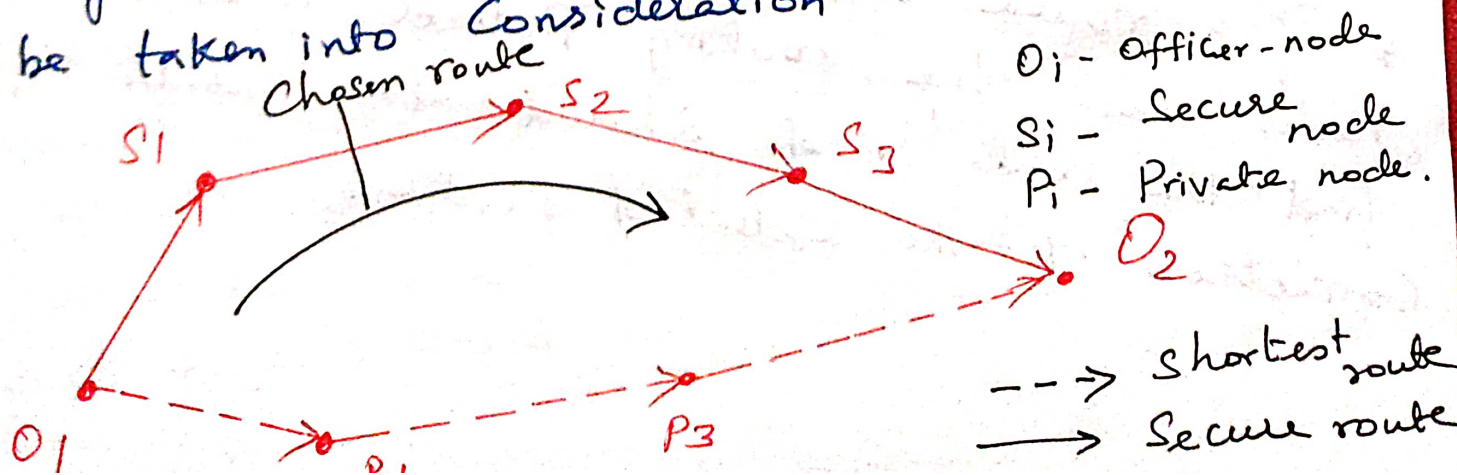 be taken into Consideration
Chosen route
S1
S2
S3
Oi - Officer-node
Si - Secure node
Pi - Private node.
O2
O1
P3
shortest route
Secure route